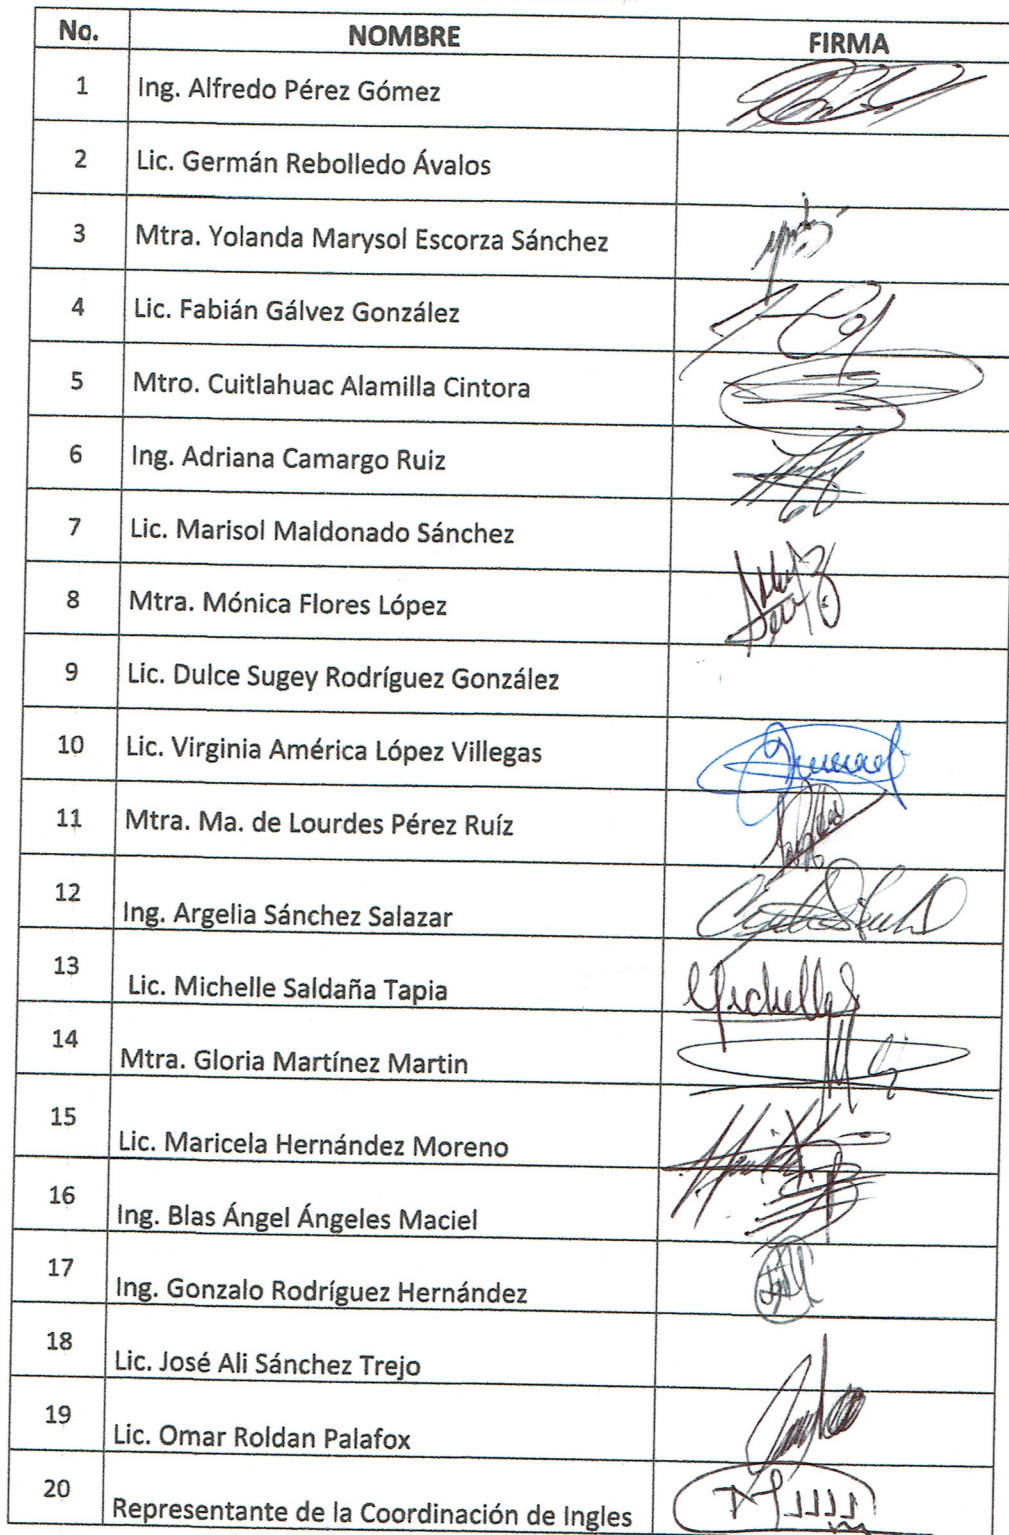 No. NOMBRE FIRMA
1 Ing. Alfredo Pérez Gómez
2 Lic. Germán Rebolledo Ávalos
3 Mtra. Yolanda Marysol Escorza Sánchez
4 Lic. Fabián Gálvez González
5 Mtro. Cuitlahuac Alamilla Cintora
6 Ing. Adriana Camargo Ruiz
7 Lic. Marisol Maldonado Sánchez
8 Mtra. Mónica Flores López
9 Lic. Dulce Sugey Rodríguez González
10 Lic. Virginia América López Villegas
11 Mtra. Ma. de Lourdes Pérez Ruíz
12 Ing. Argelia Sánchez Salazar
13 Lic. Michelle Saldaña Tapia
14 Mtra. Gloria Martínez Martin
15 Lic. Maricela Hernández Moreno
16 Ing. Blas Ángel Ángeles Maciel
17 Ing. Gonzalo Rodríguez Hernández
18 Lic. José Ali Sánchez Trejo
19 Lic. Omar Roldan Palafox
20 Representante de la Coordinación de Ingles